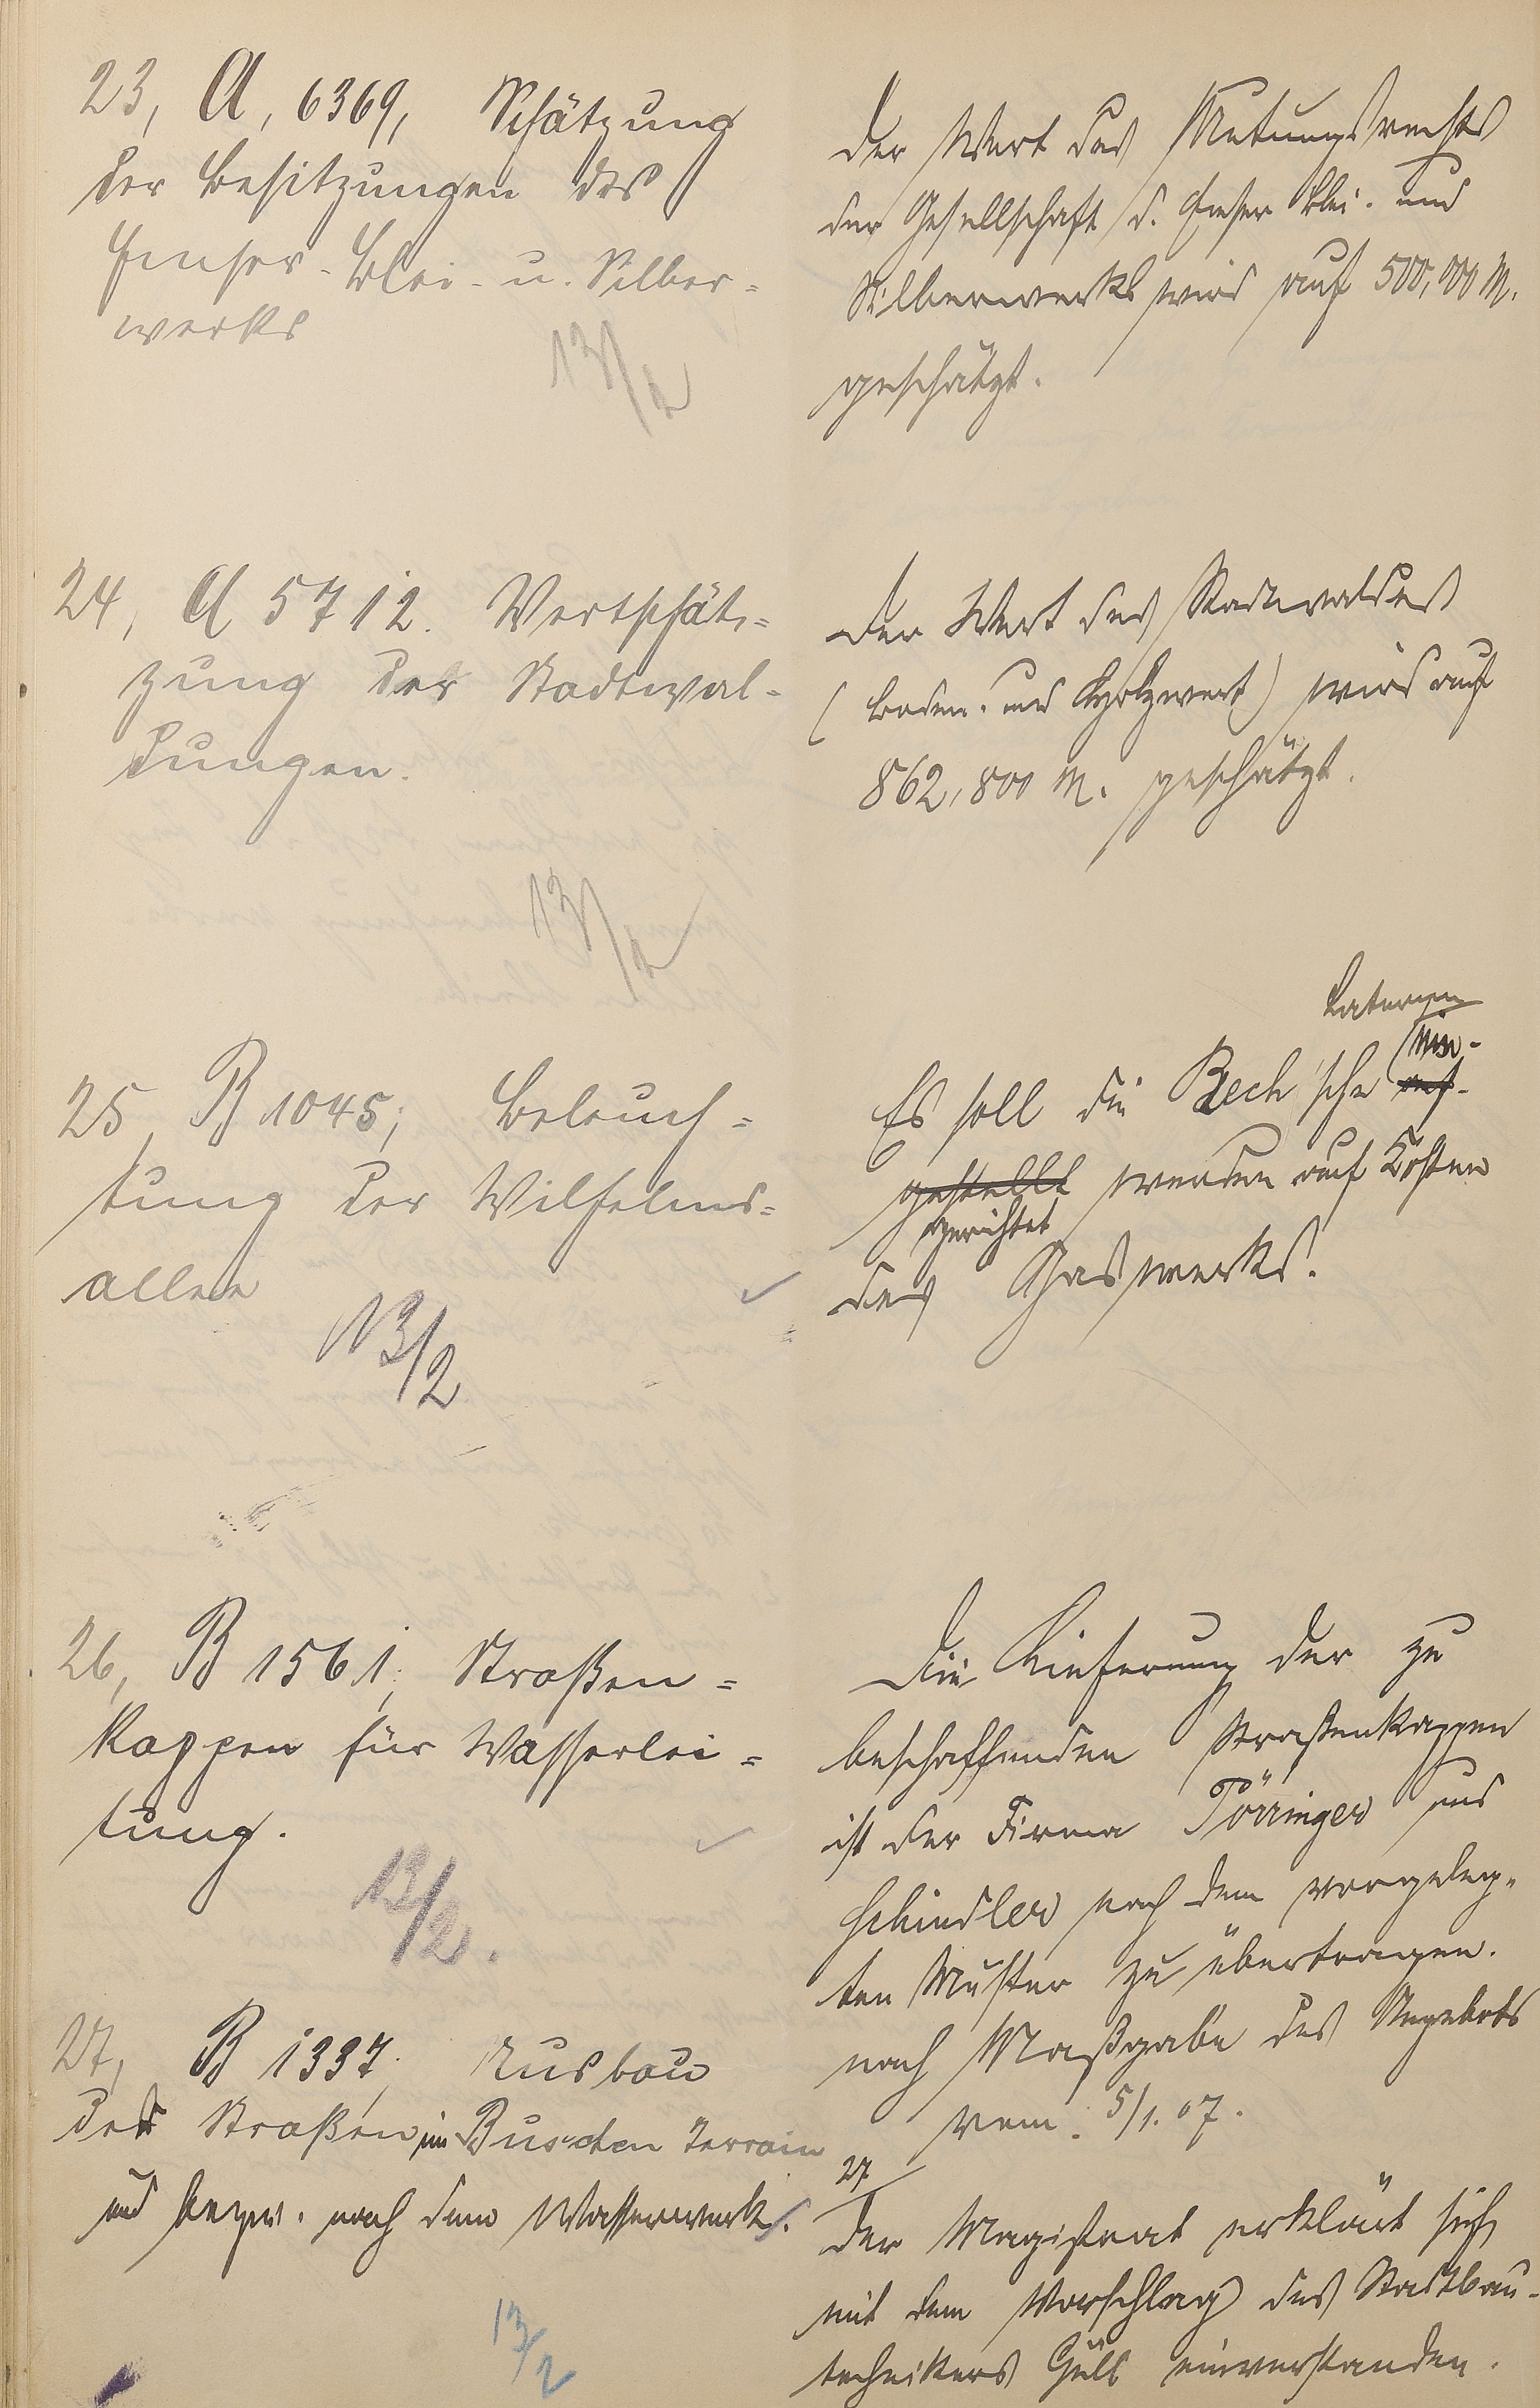 23, A, 6369, Schätzung
der Besitzungen des
Emser-Blei- u. Silber-
werks
13/2
Der Wert des Mutungsrechts
der Gesellschaft d. Emser Blei- und
Silberwerks wird auf 500,000 M.
geschätzt.
24, A 5712. Wertschät-
zung der Stadtwal-
dungen.
13/2
Der Wert des Stadtwaldes
(Boden- und Holzwert) wird auf
862,800 M. geschätzt.
25, B 1045; Beleuch-
tung der Wilhelms-
allee
13/2
Laternen
Es soll die Bech'sche auf-
gestellt werden auf Kosten
gerichtet
des Gaswerks.
26, B 1561; Straßen-
kappen für Wasserlei-
tung.
13/2.
Die Lieferung der zu
beschaffenden Straßenkappen
ist der Firma Törringer und
Schindler nach dem vorgeleg-
ten Muster zu übertragen.
nach Maßgabe des Angebots
vom 5/1.07.
27, B 1337; Ausbau
der Straßen im Buschen Terrain
und bezw. nach dem Wasserwerk.
13/2
27
Der Magistrat erklärt sich
mit dem Vorschlag des Stadtbau-
technikers Güll einverstanden.